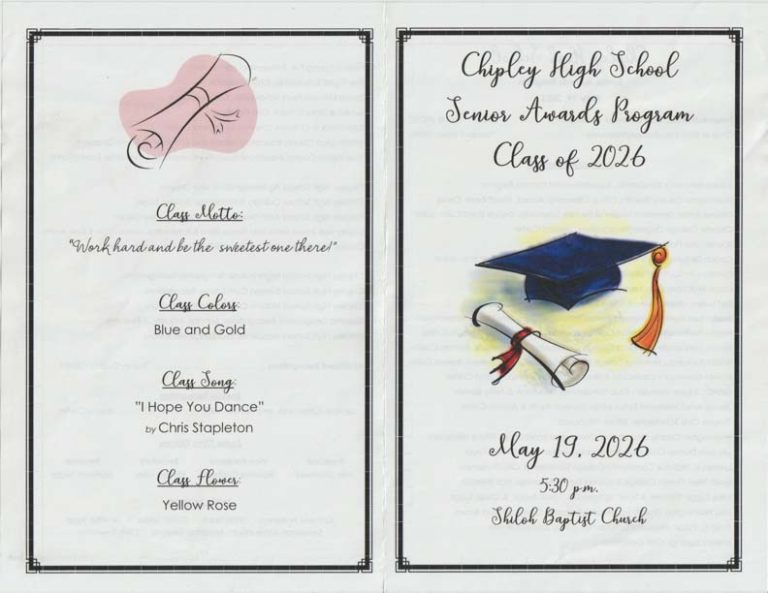 Class Motto:
"Work hard and be the sweetest one there!"
Class Colors:
Blue and Gold
Class Song:
"I Hope You Dance"
by Chris Stapleton
Class Flower:
Yellow Rose
Chipley High School
Senior Awards Program
Class of 2026
May 19, 2026
5:30 p.m.
Shiloh Baptist Church